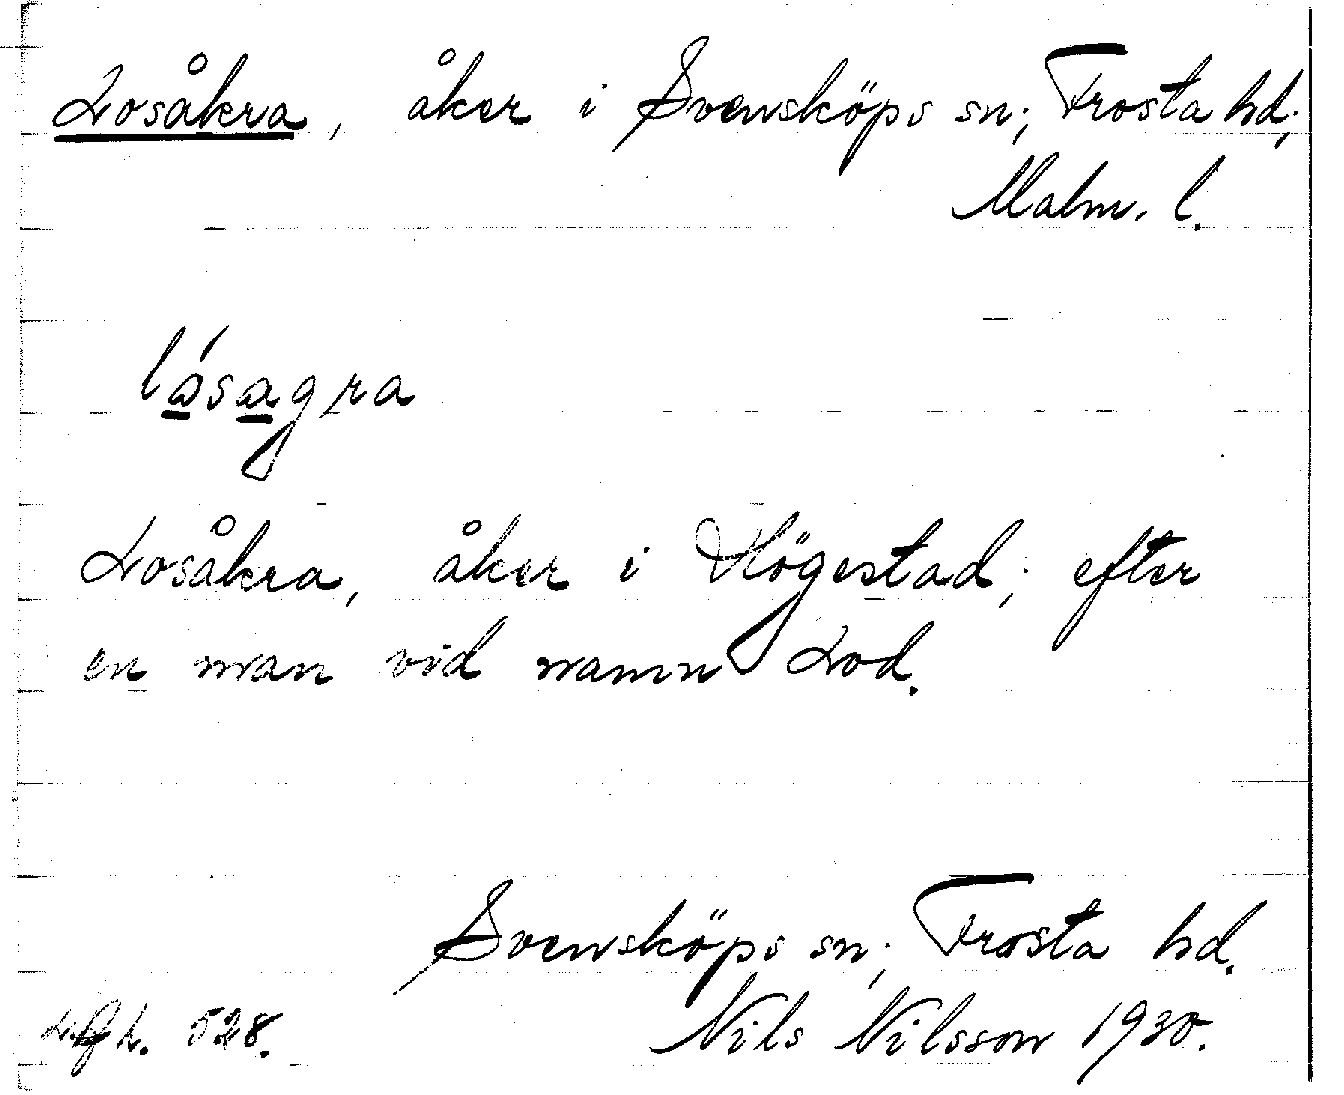 Losåkra, åker i Svensköps sn; Frosta hd;
Malm. l.
låsagra
Losåkra, åker i Högestad; efter
en man vid namn Lod.
Svensköps sn; Frosta hd.
528. Nils Nilsson 1930.